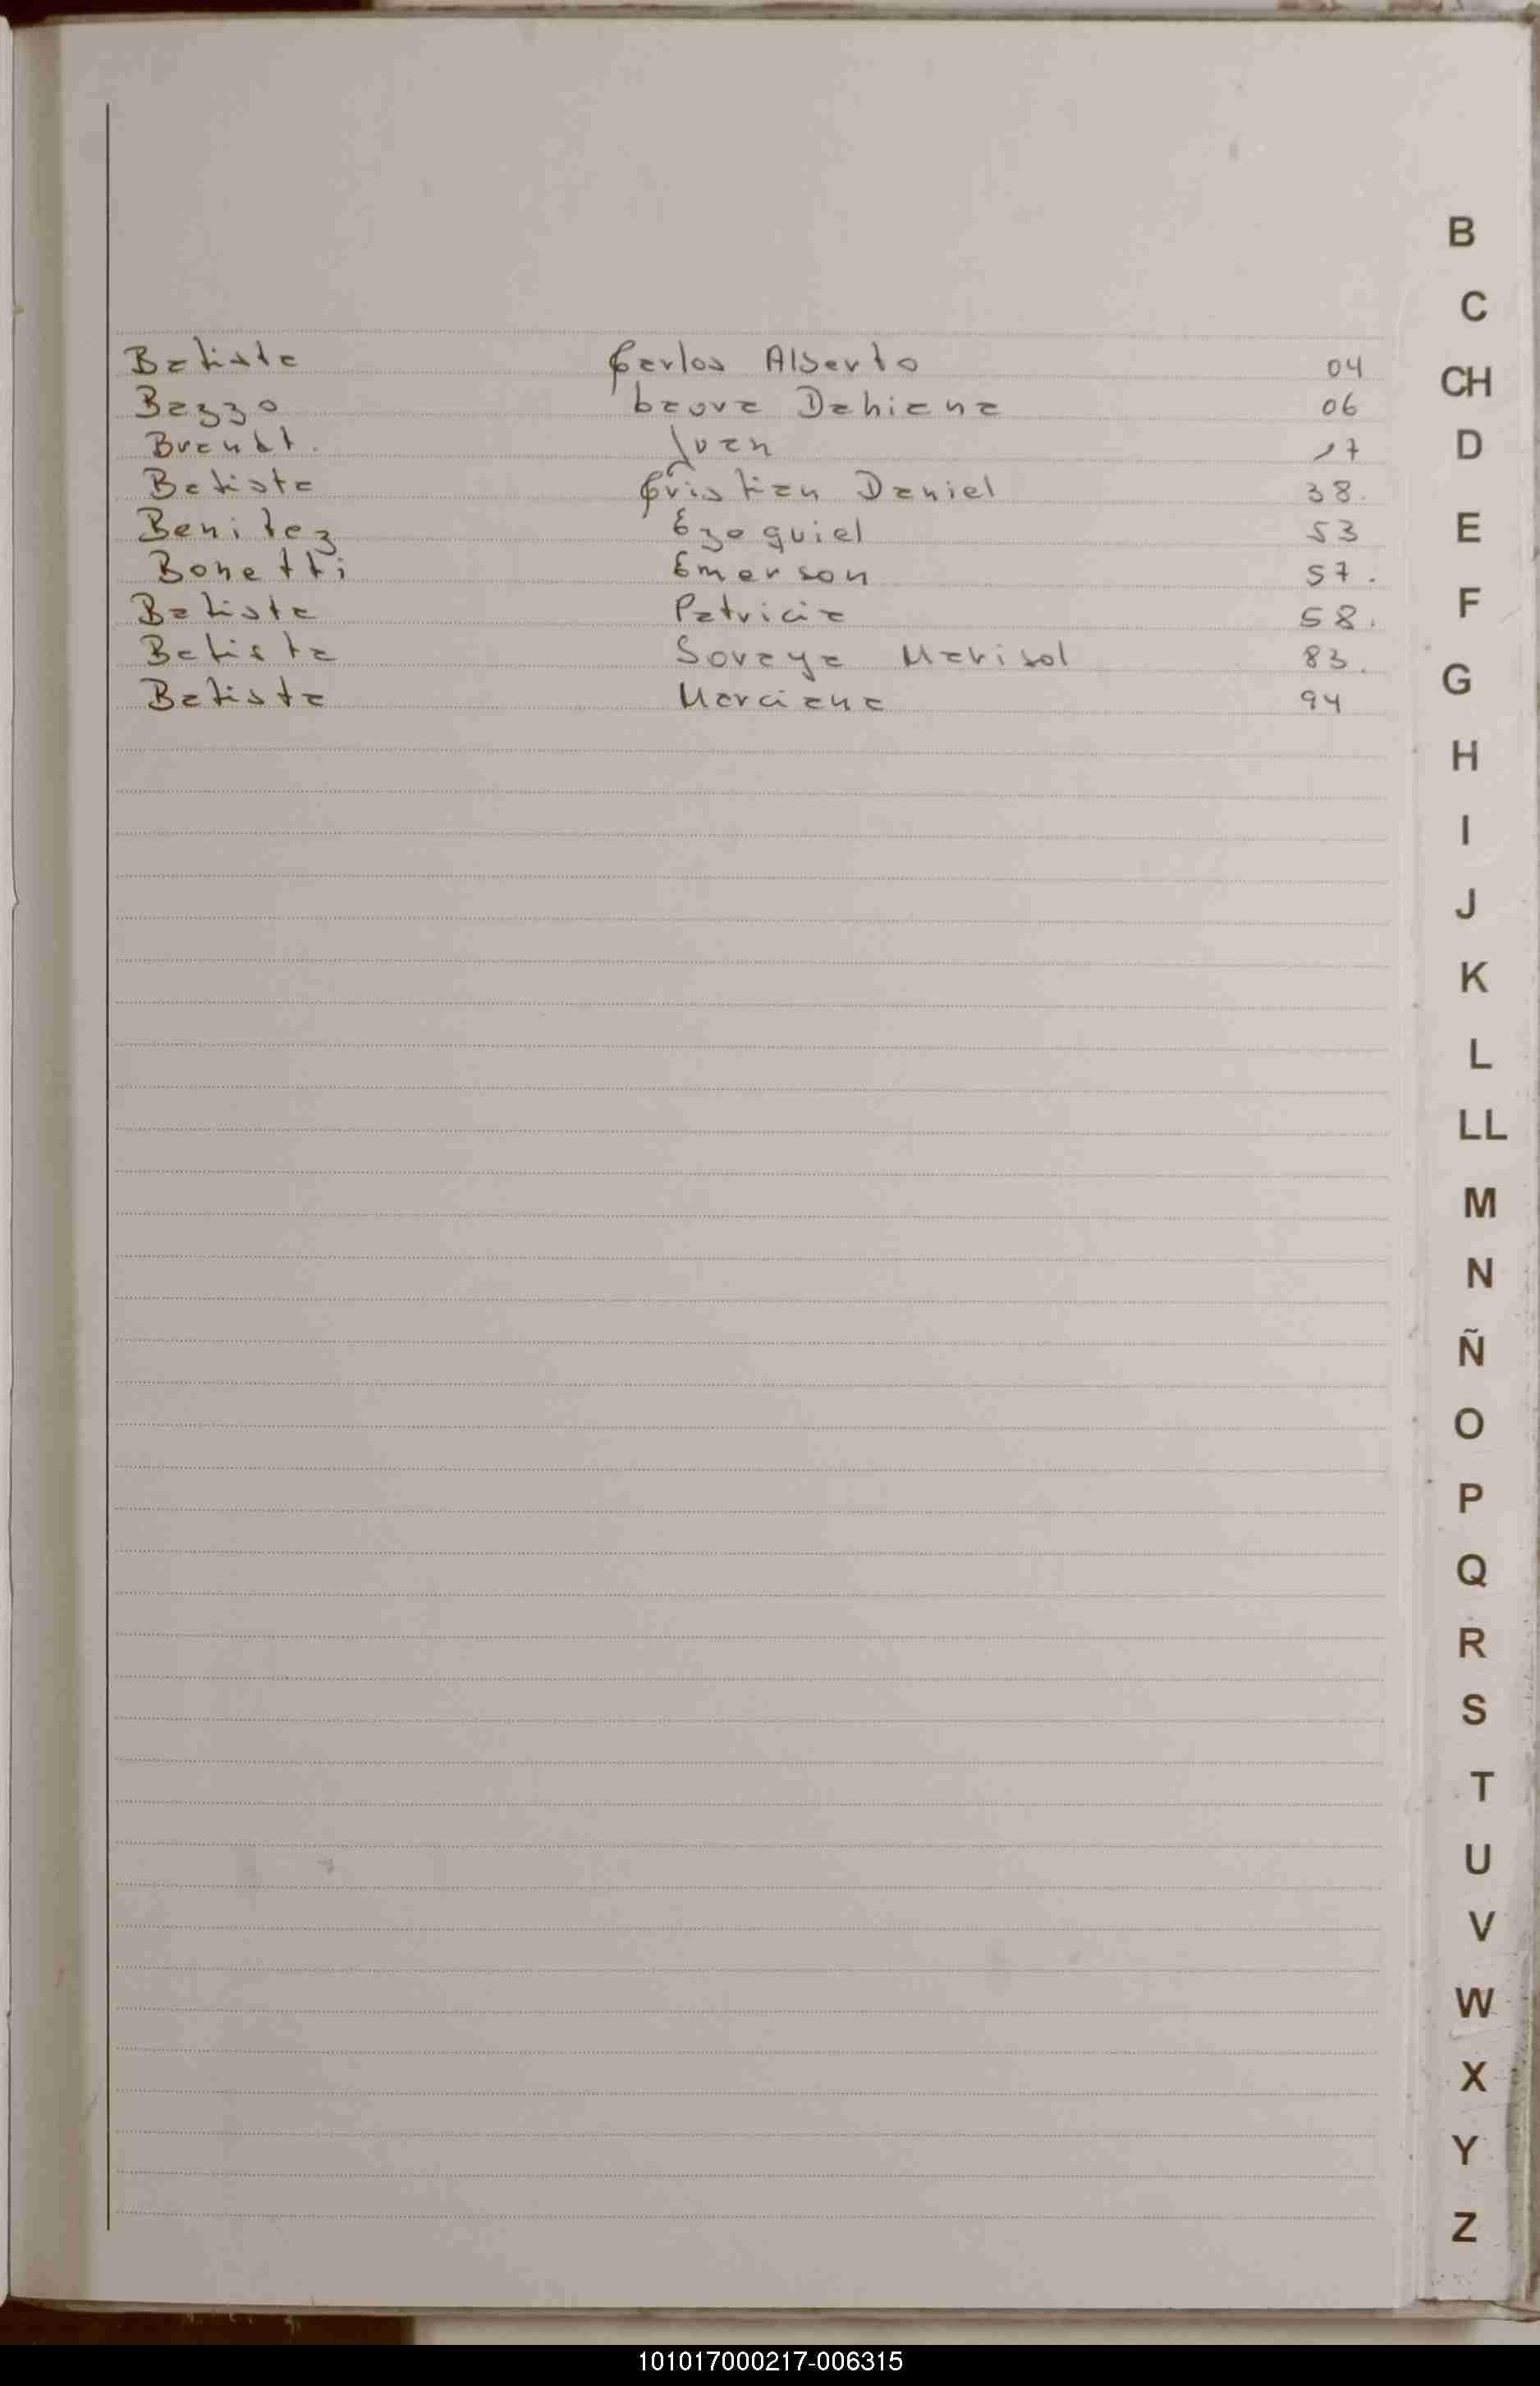 Batista Carlos Alberto 04
Bazzo Laura Dahiana 06
Brandt. Juan 17
Batista Cristian Daniel 38.
Benitez Ezequiel 53
Bonetti Emerson 57.
Batista Patricia 58.
Batista Soraya Marisol 83.
Batista Marciana 94
B
C
CH
D
E
F
G
H
I
J
K
L
LL
M
N
Ñ
O
P
Q
R
S
T
U
V
W
X
Y
Z
101017000217-006315